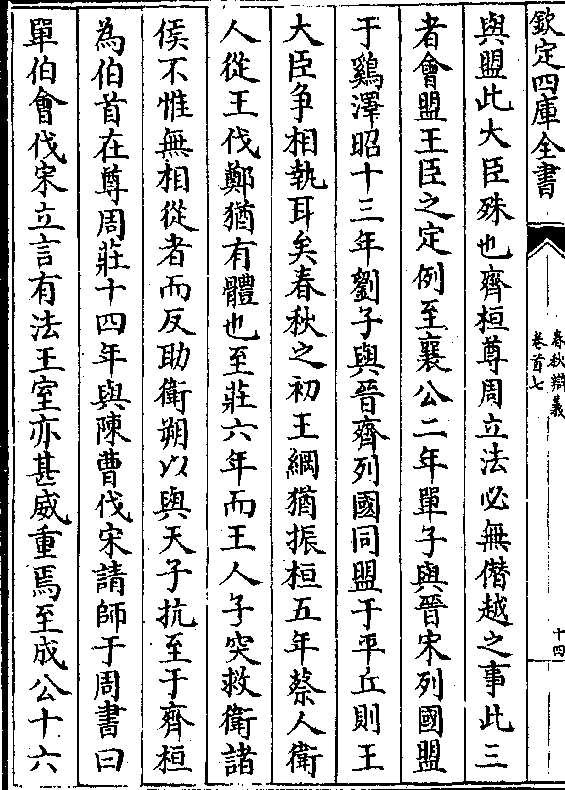 欽定四庫全書
春秋辯義
卷首七
十四
與盟此大臣殊也齊桓尊周立法必無僭越之事此三
者會盟王臣之定例至襄公二年單子與晉宋列國盟
于鷄澤昭十三年劉子與晉齊列國同盟于平丘則王
大臣爭相執耳矣春秋之初王綱猶振桓五年蔡人衛
人從王伐鄭猶有體也至莊六年而王人子突救衛諸
侯不惟無相從者而反助衛朔以與天子抗至于齊桓
為伯首在尊周莊十四年與陳曹伐宋請師于周書曰
單伯會伐宋立言有法王室亦甚威重焉至成公十六